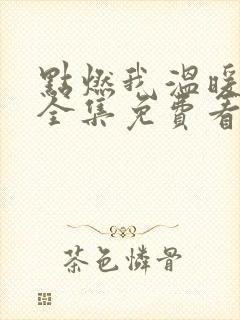 點燃我溫暖
全集免費看
茶色憐骨